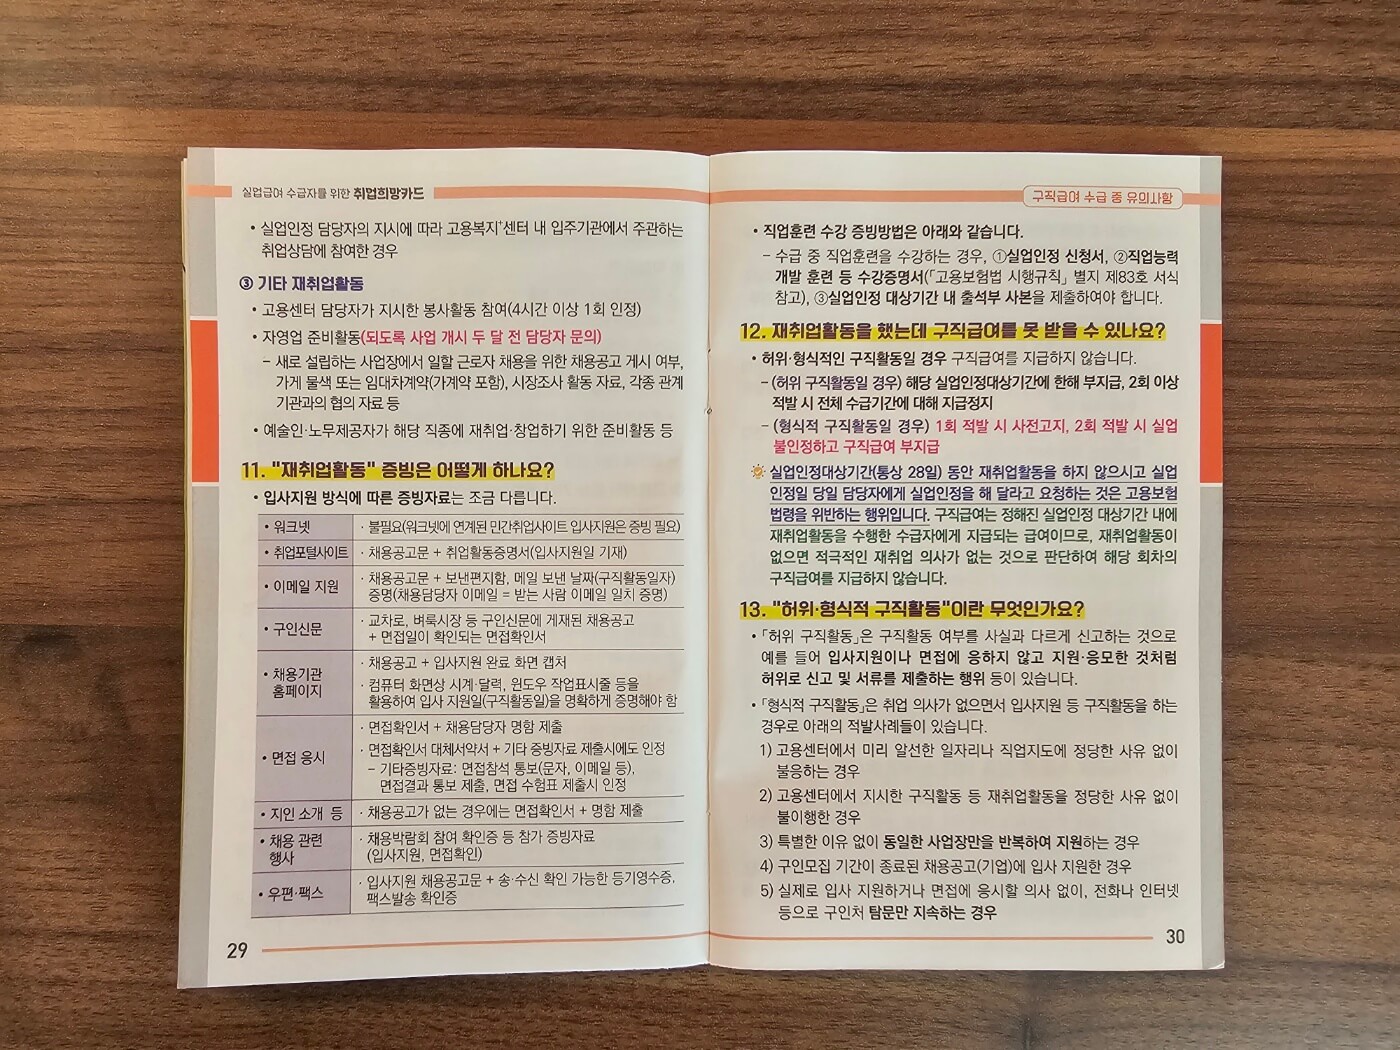 실업급여 수급자를 위한 취업희망카드
• 실업인정 담당자의 지시에 따라 고용복지+센터 내 입주기관에서 주관하는
취업상담에 참여한 경우
③ 기타 재취업활동
• 고용센터 담당자가 지시한 봉사활동 참여(4시간 이상 1회 인정)
• 자영업 준비활동(되도록 사업 개시 두 달 전 담당자 문의)
– 새로 설립하는 사업장에서 일할 근로자 채용을 위한 채용공고 게시 여부,
가게 물색 또는 임대차계약(가계약 포함), 시장조사 활동 자료, 각종 관계
기관과의 협의 자료 등
• 예술인·노무제공자가 해당 직종에 재취업·창업하기 위한 준비활동 등
11. "재취업활동" 증빙은 어떻게 하나요?
• 입사지원 방식에 따른 증빙자료는 조금 다릅니다.
• 워크넷 · 불필요(워크넷에 연계된 민간취업사이트 입사지원은 증빙 필요)
• 취업포털사이트 · 채용공고문 + 취업활동증명서(입사지원일 기재)
• 이메일 지원 · 채용공고문 + 보낸편지함, 메일 보낸 날짜(구직활동일자)
증명(채용담당자 이메일 = 받는 사람 이메일 일치 증명)
• 구인신문 · 교차로, 벼룩시장 등 구인신문에 게재된 채용공고
+ 면접일이 확인되는 면접확인서
• 채용기관
홈페이지
· 채용공고 + 입사지원 완료 화면 캡처
· 컴퓨터 화면상 시계·달력, 윈도우 작업표시줄 등을
활용하여 입사 지원일(구직활동일)을 명확하게 증명해야 함
• 면접 응시
· 면접확인서 + 채용담당자 명함 제출
· 면접확인서 대체서약서 + 기타 증빙자료 제출시에도 인정
– 기타증빙자료: 면접참석 통보(문자, 이메일 등),
면접결과 통보 제출, 면접 수험표 제출시 인정
• 지인 소개 등 · 채용공고가 없는 경우에는 면접확인서 + 명함 제출
• 채용 관련
행사
· 채용박람회 참여 확인증 등 참가 증빙자료
(입사지원, 면접확인)
• 우편·팩스 · 입사지원 채용공고문 + 송·수신 확인 가능한 등기영수증,
팩스발송 확인증
29
구직급여 수급 중 유의사항
• 직업훈련 수강 증빙방법은 아래와 같습니다.
– 수급 중 직업훈련을 수강하는 경우, ①실업인정 신청서, ②직업능력
개발 훈련 등 수강증명서(「고용보험법 시행규칙」 별지 제83호 서식
참고), ③실업인정 대상기간 내 출석부 사본을 제출하여야 합니다.
12. 재취업활동을 했는데 구직급여를 못 받을 수 있나요?
• 허위·형식적인 구직활동일 경우 구직급여를 지급하지 않습니다.
– (허위 구직활동일 경우) 해당 실업인정대상기간에 한해 부지급, 2회 이상
적발 시 전체 수급기간에 대해 지급정지
– (형식적 구직활동일 경우) 1회 적발 시 사전고지, 2회 적발 시 실업
불인정하고 구직급여 부지급
실업인정대상기간(통상 28일) 동안 재취업활동을 하지 않으시고 실업
인정일 당일 담당자에게 실업인정을 해 달라고 요청하는 것은 고용보험
법령을 위반하는 행위입니다. 구직급여는 정해진 실업인정 대상기간 내에
재취업활동을 수행한 수급자에게 지급되는 급여이므로, 재취업활동이
없으면 적극적인 재취업 의사가 없는 것으로 판단하여 해당 회차의
구직급여를 지급하지 않습니다.
13. "허위·형식적 구직활동"이란 무엇인가요?
• 「허위 구직활동」은 구직활동 여부를 사실과 다르게 신고하는 것으로
예를 들어 입사지원이나 면접에 응하지 않고 지원·응모한 것처럼
허위로 신고 및 서류를 제출하는 행위 등이 있습니다.
• 「형식적 구직활동」은 취업 의사가 없으면서 입사지원 등 구직활동을 하는
경우로 아래의 적발사례들이 있습니다.
1) 고용센터에서 미리 알선한 일자리나 직업지도에 정당한 사유 없이
불응하는 경우
2) 고용센터에서 지시한 구직활동 등 재취업활동을 정당한 사유 없이
불이행한 경우
3) 특별한 이유 없이 동일한 사업장만을 반복하여 지원하는 경우
4) 구인모집 기간이 종료된 채용공고(기업)에 입사 지원한 경우
5) 실제로 입사 지원하거나 면접에 응시할 의사 없이, 전화나 인터넷
등으로 구인처 탐문만 지속하는 경우
30